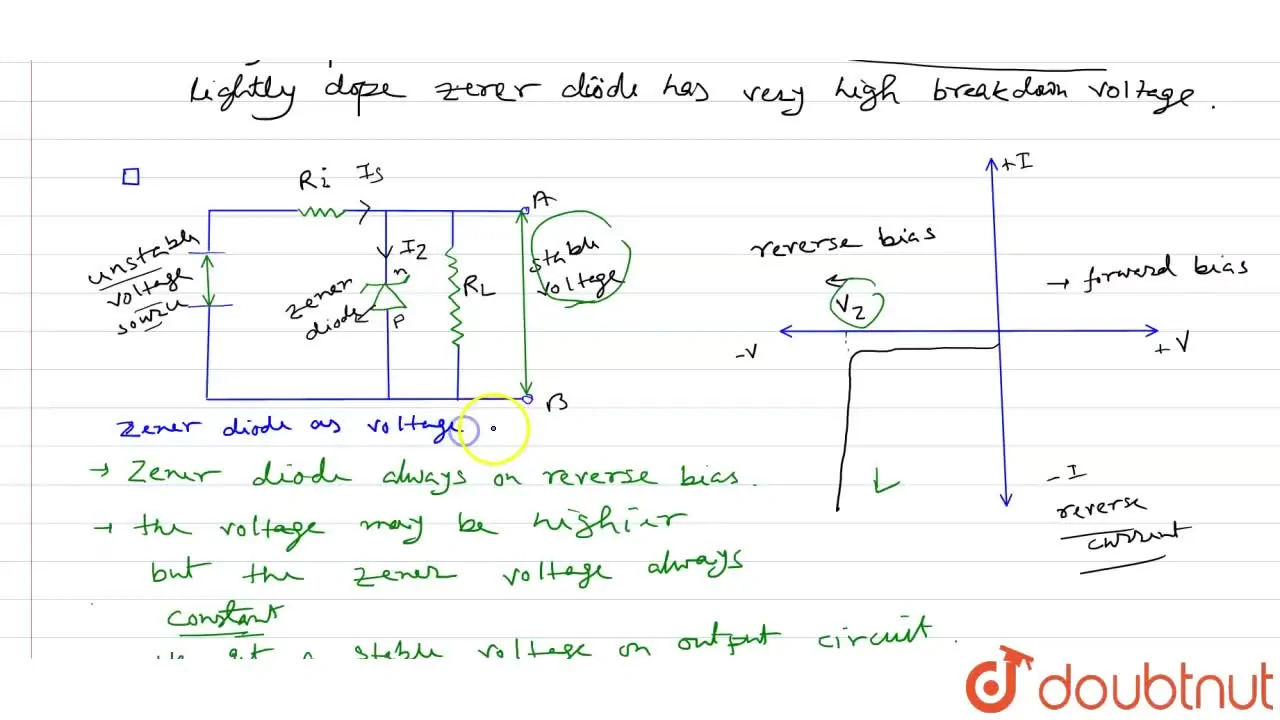 lightly dope zener diode has very high breakdown voltage.
Ri Is
A
+I
unstable
voltage
source
I2
n
zener
diode
P
RL
stable
voltage
reverse bias
→ forward bias
VZ
-V
+V
B
zener diode as voltage
→ Zener diode always on reverse bias.
→ the voltage may be highier
but the zener voltage always
constant
stable voltage on output circuit.
-I
reverse
current
doubtnut